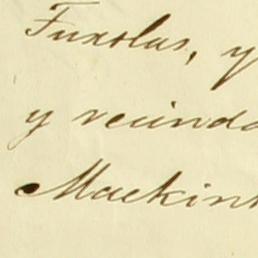 Fuxolus, y
y vecinda
Mackin